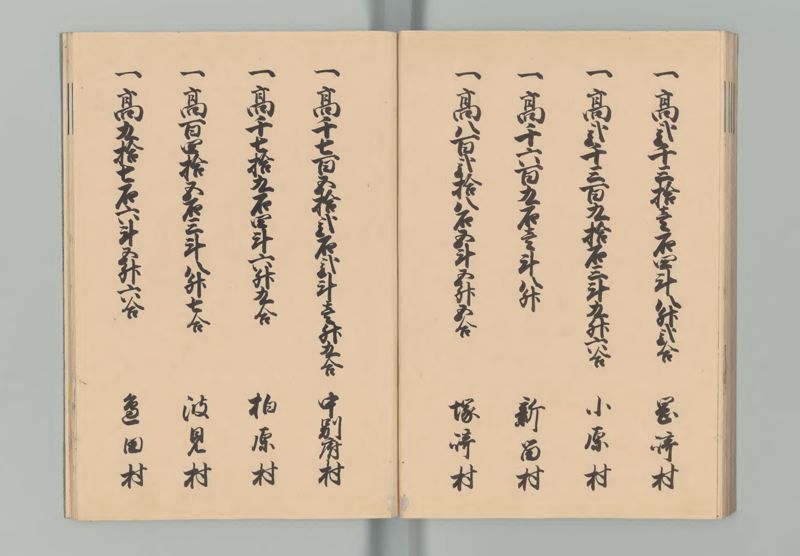 一 高弐千三拾壱石四斗八升弐合 岡崎村
一 高弐千三百九拾石三斗九升六合 小原村
一 高千六百九石壱斗八升 新留村
一 高八百弐拾八石五斗五升五合 塚崎村
一 高千七百五拾弐石弐斗壱升九合 中別府村
一 高千七拾九石四斗六升九合 柏原村
一 高百四拾五石三斗八升七合 波見村
一 高九拾七石六斗五升六合 田村